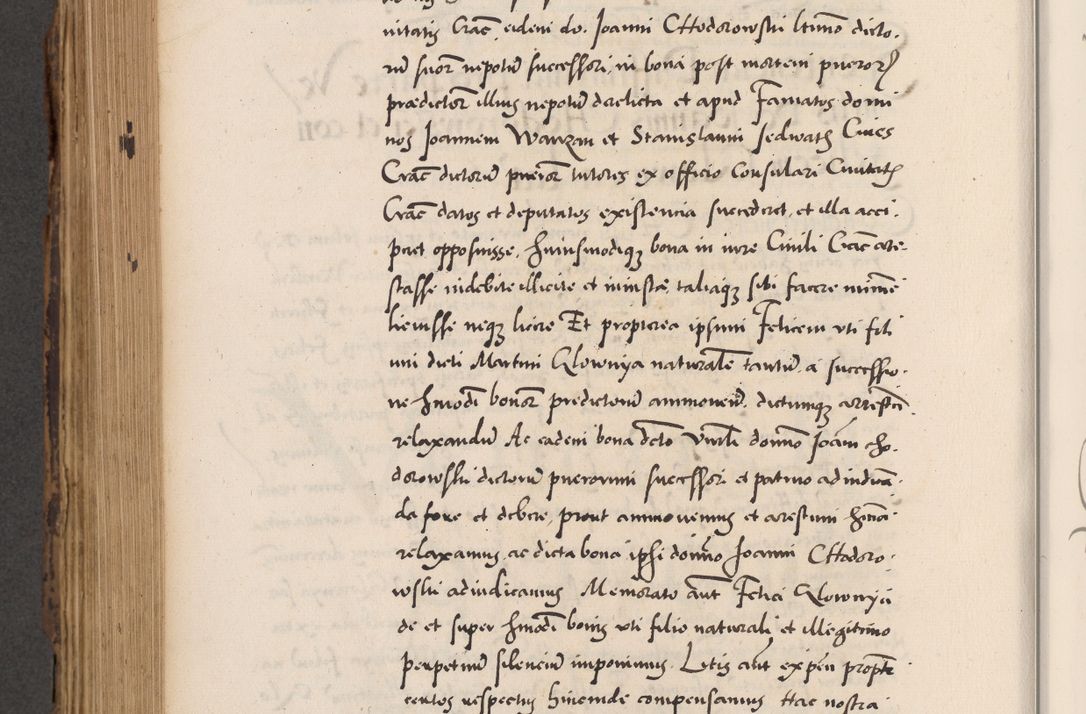 uitatis Crac̄ eideni do. Joanni Chodorowski ltimo dicto-
rū suorꝫ nepotū successori, in bona post mortem pueroꝝ
prædictorꝫ illius nepotū derelicta et apud Famatos domi
nos Joannem Warzan et Stanislaum sedwatz Ciues
Crac̄ dictorū puerorꝫ tutores ex officio Consulari Ciuitatꝭ
Crac̄ datos et deputatos existencia succederet, et illa acci-
peret opposuisse, huiusmodiqꝫ bona in iure Ciuili Crac̄ are-
stasse indebite illicite et iniuste, taliaqꝫ sibi facere minime
licuisse neqꝫ licere Et propterea ipsum Felicem vti fili
um dicti Martini Glownya naturalē tantū a successio-
ne hmōdi bonorꝫ predictorū ammouend, dictumqꝫ arrestū
relaxandū Ac eadem bona dcto Vnibli domno Joāni cho-
dorowski dictorū puerorum successori et patruo adiudicā-
da fore et debere, prout ammouemus et arestum hmōi
relaxamus, ac dicta bona ipsi domno Joanni Chodoro-
wski adiudicamus Memorato aūt Felici Glownya
de et super hmōdi bonis vti filio naturali et illegitimo
perpetuū silenciū imponimus. Litis aūt expen̄ propt
certos respectus hincinde compensamus Hac nostra